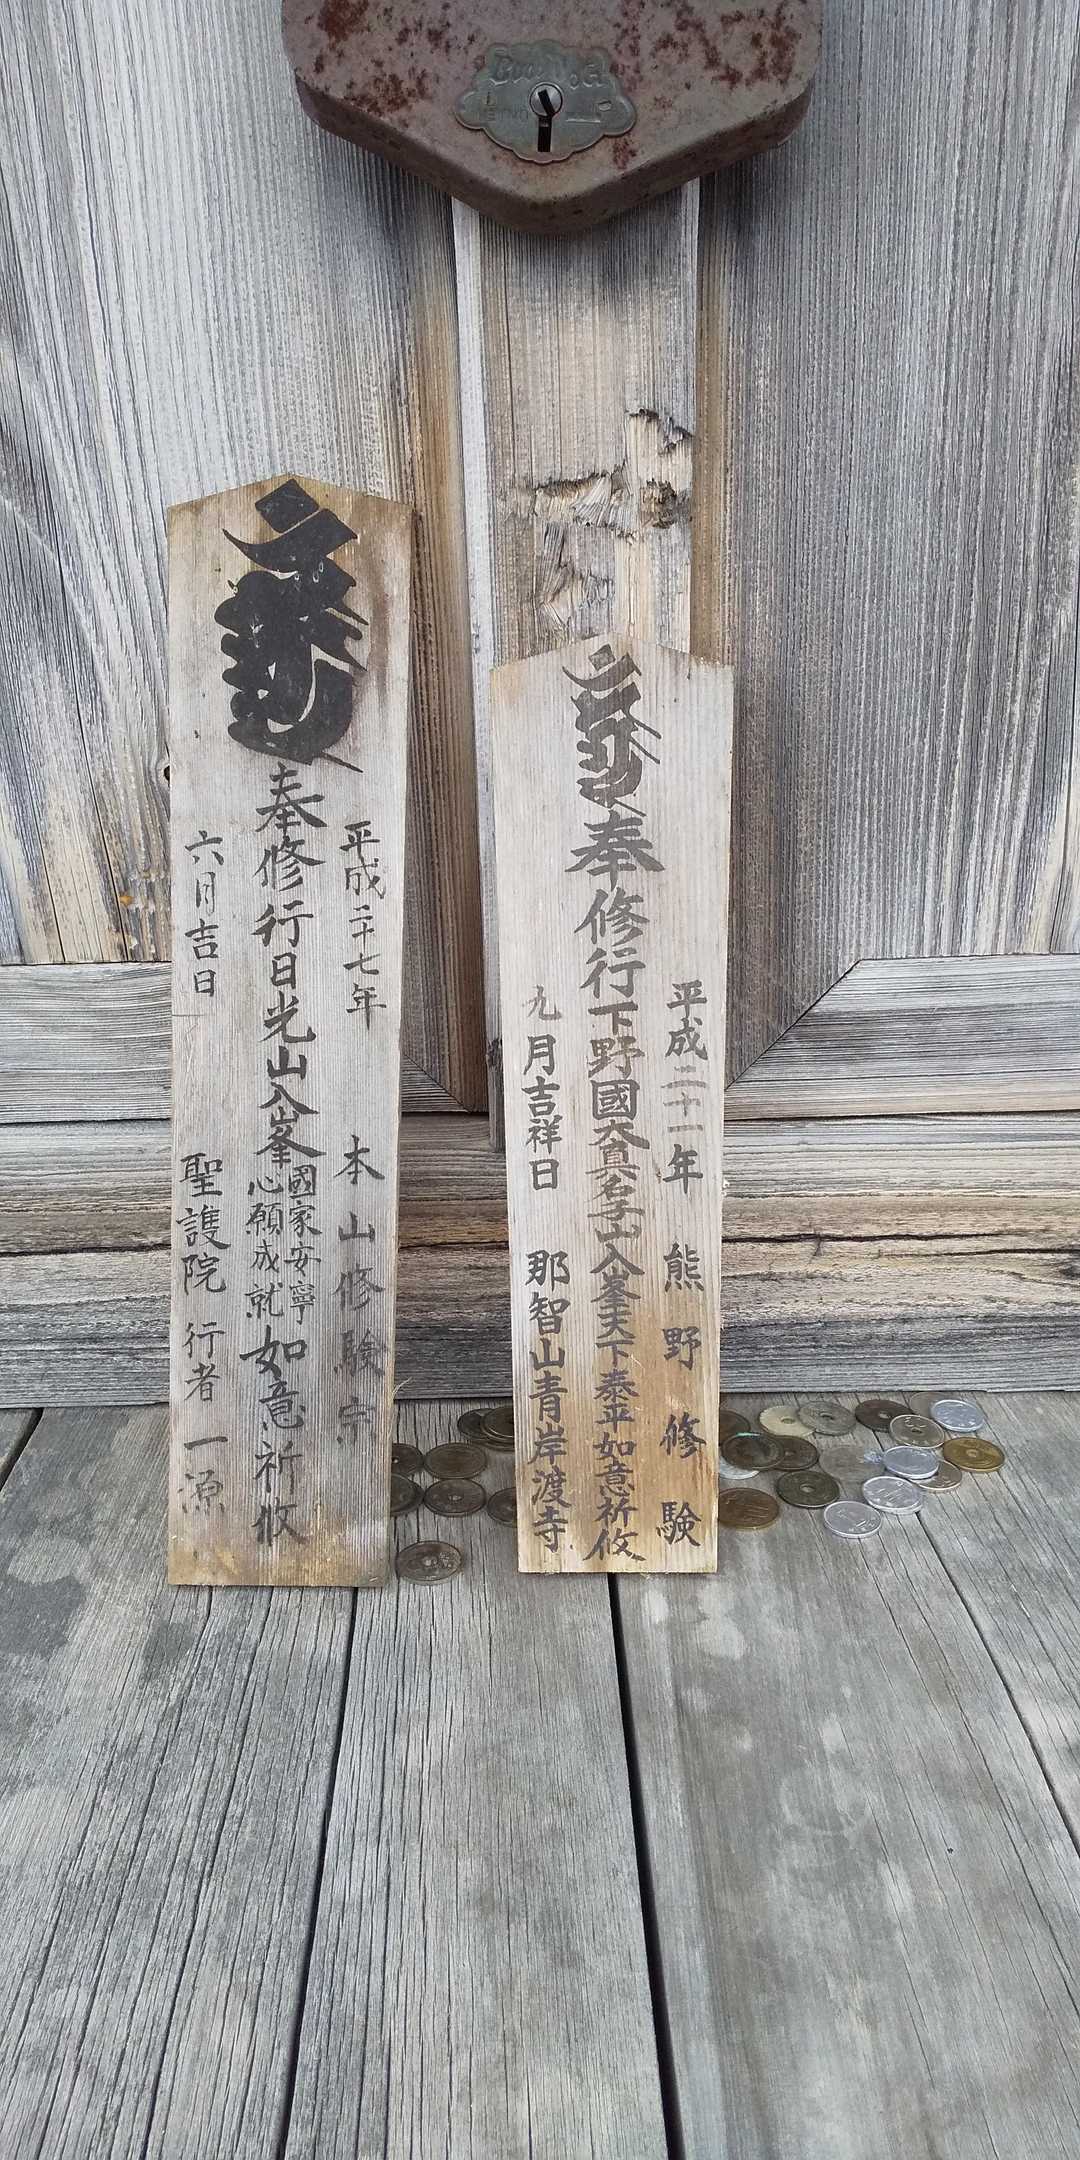 平成二十七年 本山修験宗
奉修行日光山入峯 國家安寧 心願成就 如意祈攸
六月吉日 聖護院 行者 一源
平成二十一年 熊野修験
奉修行下野國大真名子山入峯天下泰平如意祈攸
九月吉祥日 那智山青岸渡寺